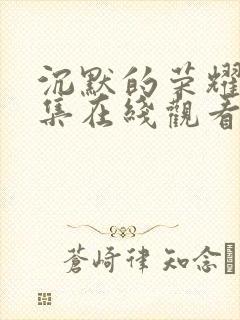 沉默的荣耀
集在綫觀看
蒼崎律 知念